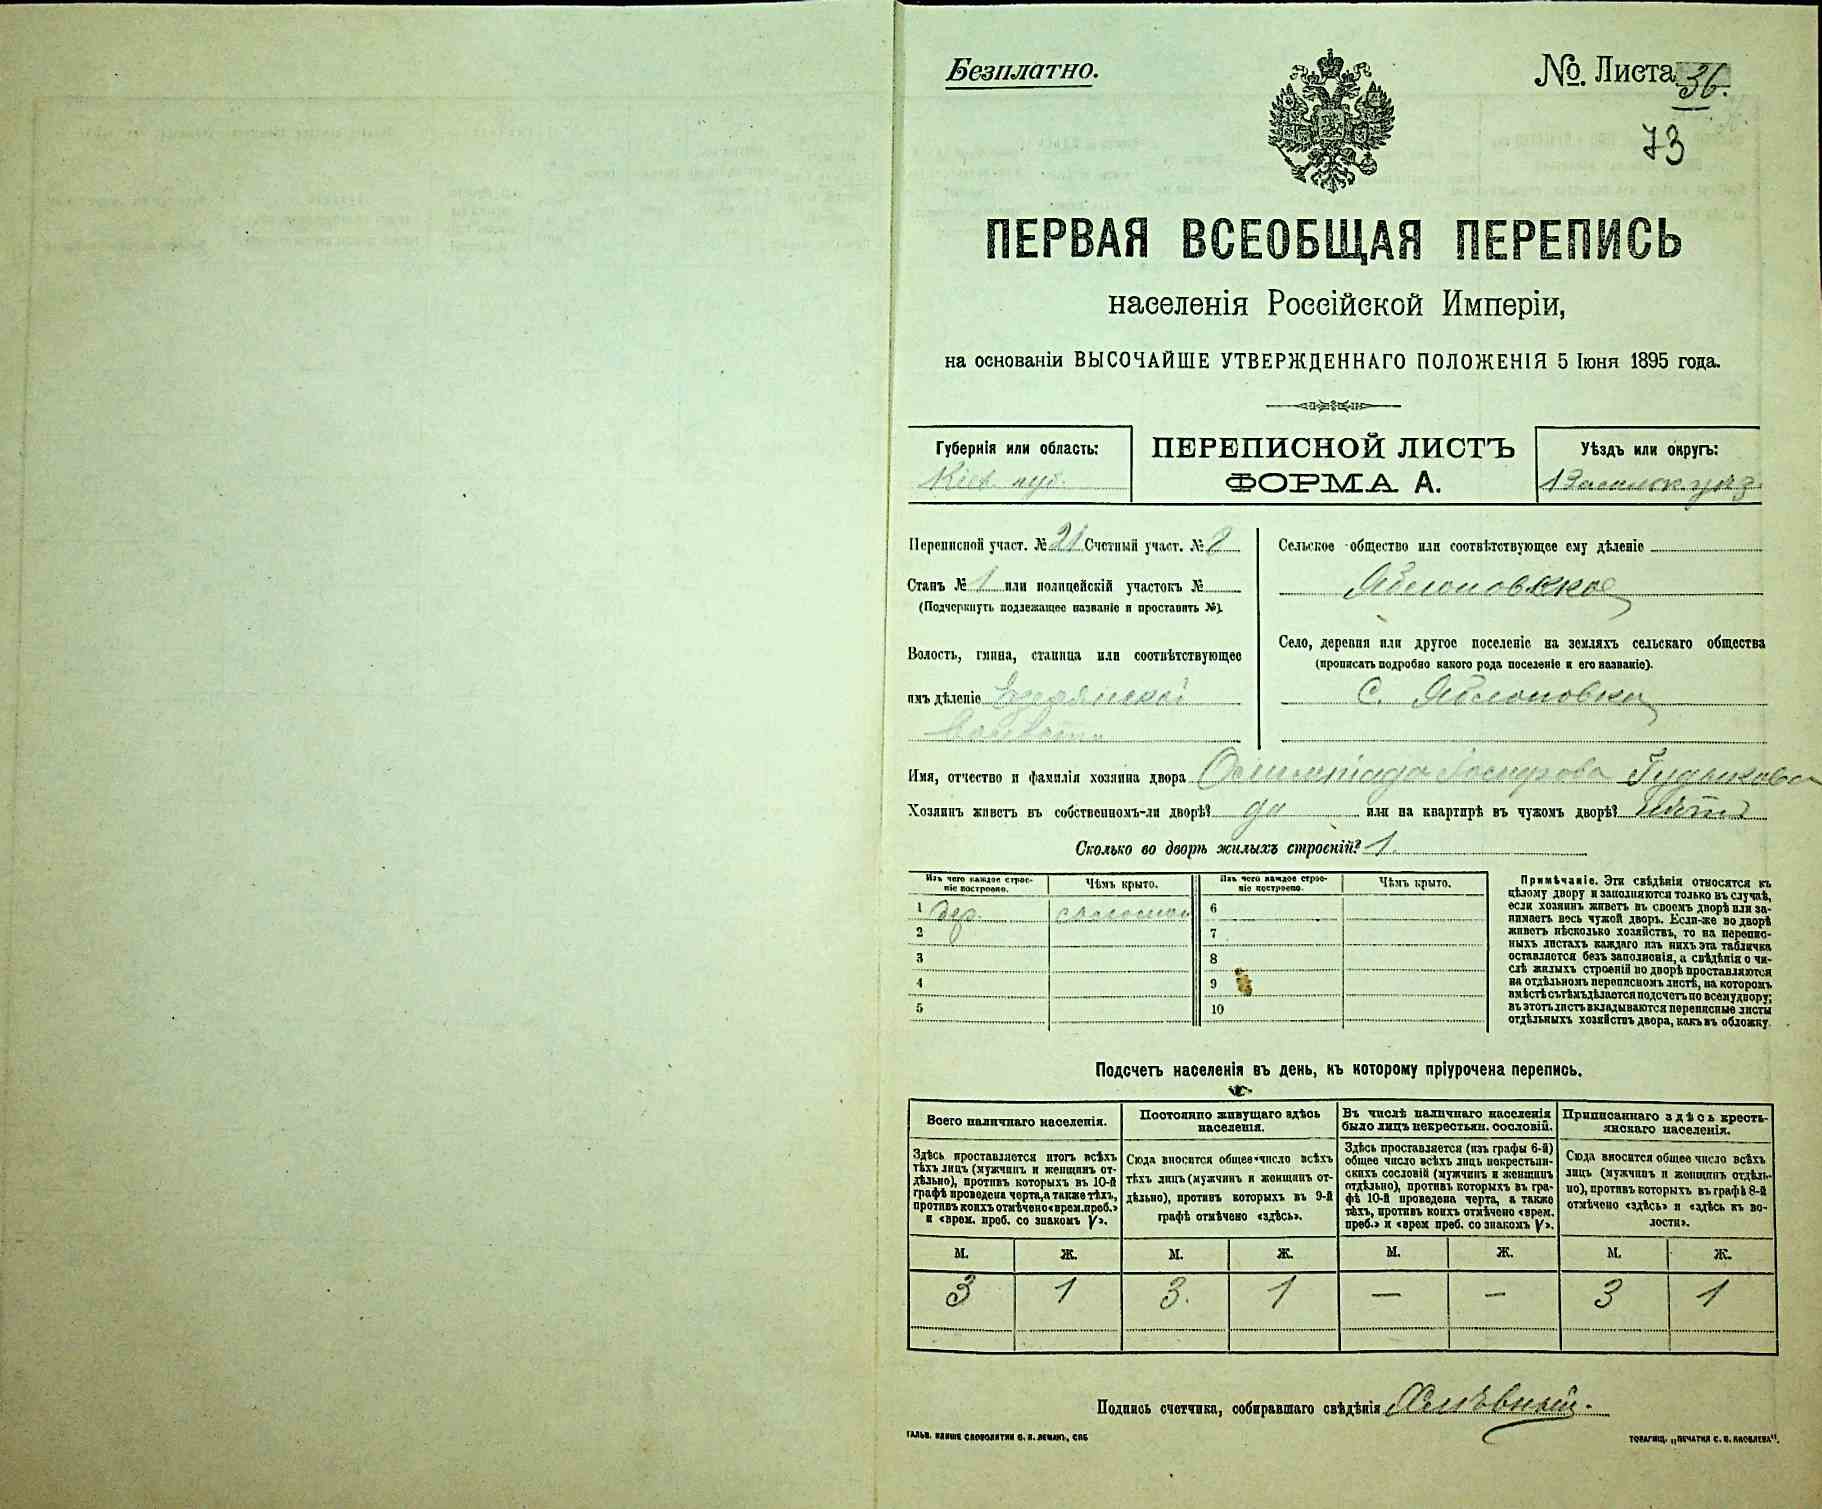 Безплатно.
№. Листа 36.
73
ПЕРВАЯ ВСЕОБЩАЯ ПЕРЕПИСЬ
населенія Россійской Имперіи,
на основаніи ВЫСОЧАЙШЕ УТВЕРЖДЕННАГО ПОЛОЖЕНІЯ 5 Іюня 1895 года.
Губернія или область:
Кіев. губ.
ПЕРЕПИСНОЙ ЛИСТЪ
ФОРМА А.
Уѣздъ или округъ:
Васильк. уѣзд.
Переписной участ. № 21 Счетный участ. № 2
Станъ № 1 или полицейскій участокъ №
(Подчеркнуть подлежащее названіе и проставить №).
Волость, гмина, станица или соотвѣтствующее
имъ дѣленіе
волости
Сельское общество или соотвѣтствующее ему дѣленіе
Яблоновское
Село, деревня или другое поселеніе на земляхъ сельскаго общества
(прописать подробно какого рода поселеніе и его названіе).
С. Яблоновка
Имя, отчество и фамилія хозяина двора Олимпіада
Хозяинъ живетъ въ собственномъ-ли дворѣ? да или на квартирѣ въ чужомъ дворѣ? нѣтъ
Сколько во дворѣ жилыхъ строеній? 1.
Изъ чего каждое строе-
ніе построено.
Чѣмъ крыто.
Изъ чего каждое строе-
ніе построено.
Чѣмъ крыто.
1 дер. соломой 6
2 7
3 8
4 9
5 10
Примѣчаніе. Эти свѣдѣнія относятся къ
цѣлому двору и заполняются только въ случаѣ,
если хозяинъ живетъ въ своемъ дворѣ или за-
нимаетъ весь чужой дворъ. Если-же во дворѣ
живетъ нѣсколько хозяйствъ, то на перепис-
ныхъ листахъ каждаго изъ нихъ эта табличка
оставляется безъ заполненія, а свѣдѣнія о чи-
слѣ жилыхъ строеній во дворѣ проставляются
на отдѣльномъ переписномъ листѣ, на которомъ
вмѣстѣ съ тѣмъ дѣлается подсчетъ по всему двору;
въ этотъ листъ вкладываются переписные листы
отдѣльныхъ хозяйствъ двора, какъ въ обложку.
Подсчетъ населенія въ день, къ которому пріурочена перепись.
Всего наличнаго населенія.
Здѣсь проставляется итогъ всѣхъ
тѣхъ лицъ (мужчинъ и женщинъ от-
дѣльно), противъ которыхъ въ 10-й
графѣ проведена черта, а также тѣхъ,
противъ коихъ отмѣчено «врем. преб.»
и «врем. преб. со знакомъ V».
Постоянно живущаго здѣсь
населенія.
Сюда вносится общее число всѣхъ
тѣхъ лицъ (мужчинъ и женщинъ от-
дѣльно), противъ которыхъ въ 9-й
графѣ отмѣчено «здѣсь».
Въ числѣ наличнаго населенія
было лицъ некрестьян. сословій.
Здѣсь проставляется (изъ графы 6-й)
общее число всѣхъ лицъ некрестьян-
скихъ сословій (мужчинъ и женщинъ
отдѣльно), противъ которыхъ въ гра-
фѣ 10-й проведена черта, а также
тѣхъ, противъ коихъ отмѣчено «врем.
преб.» и «врем преб. со знакомъ V».
Приписаннаго здѣсь кресть-
янскаго населенія.
Сюда вносится общее число всѣхъ
лицъ (мужчинъ и женщинъ отдѣль-
но), противъ которыхъ въ графѣ 8-й
отмѣчено «здѣсь» и «здѣсь къ во-
лости».
М. Ж. М. Ж. М. Ж. М. Ж.
3 1 3. 1 — — 3 1
Подпись счетчика, собиравшаго свѣдѣнія
ГАЛЬВ. КЛИШЕ СЛОВОЛИТНИ О. И. ЛЕМАНЪ, СПБ
ТОВАРИЩ. „ПЕЧАТНЯ С. П. ЯКОВЛЕВА".